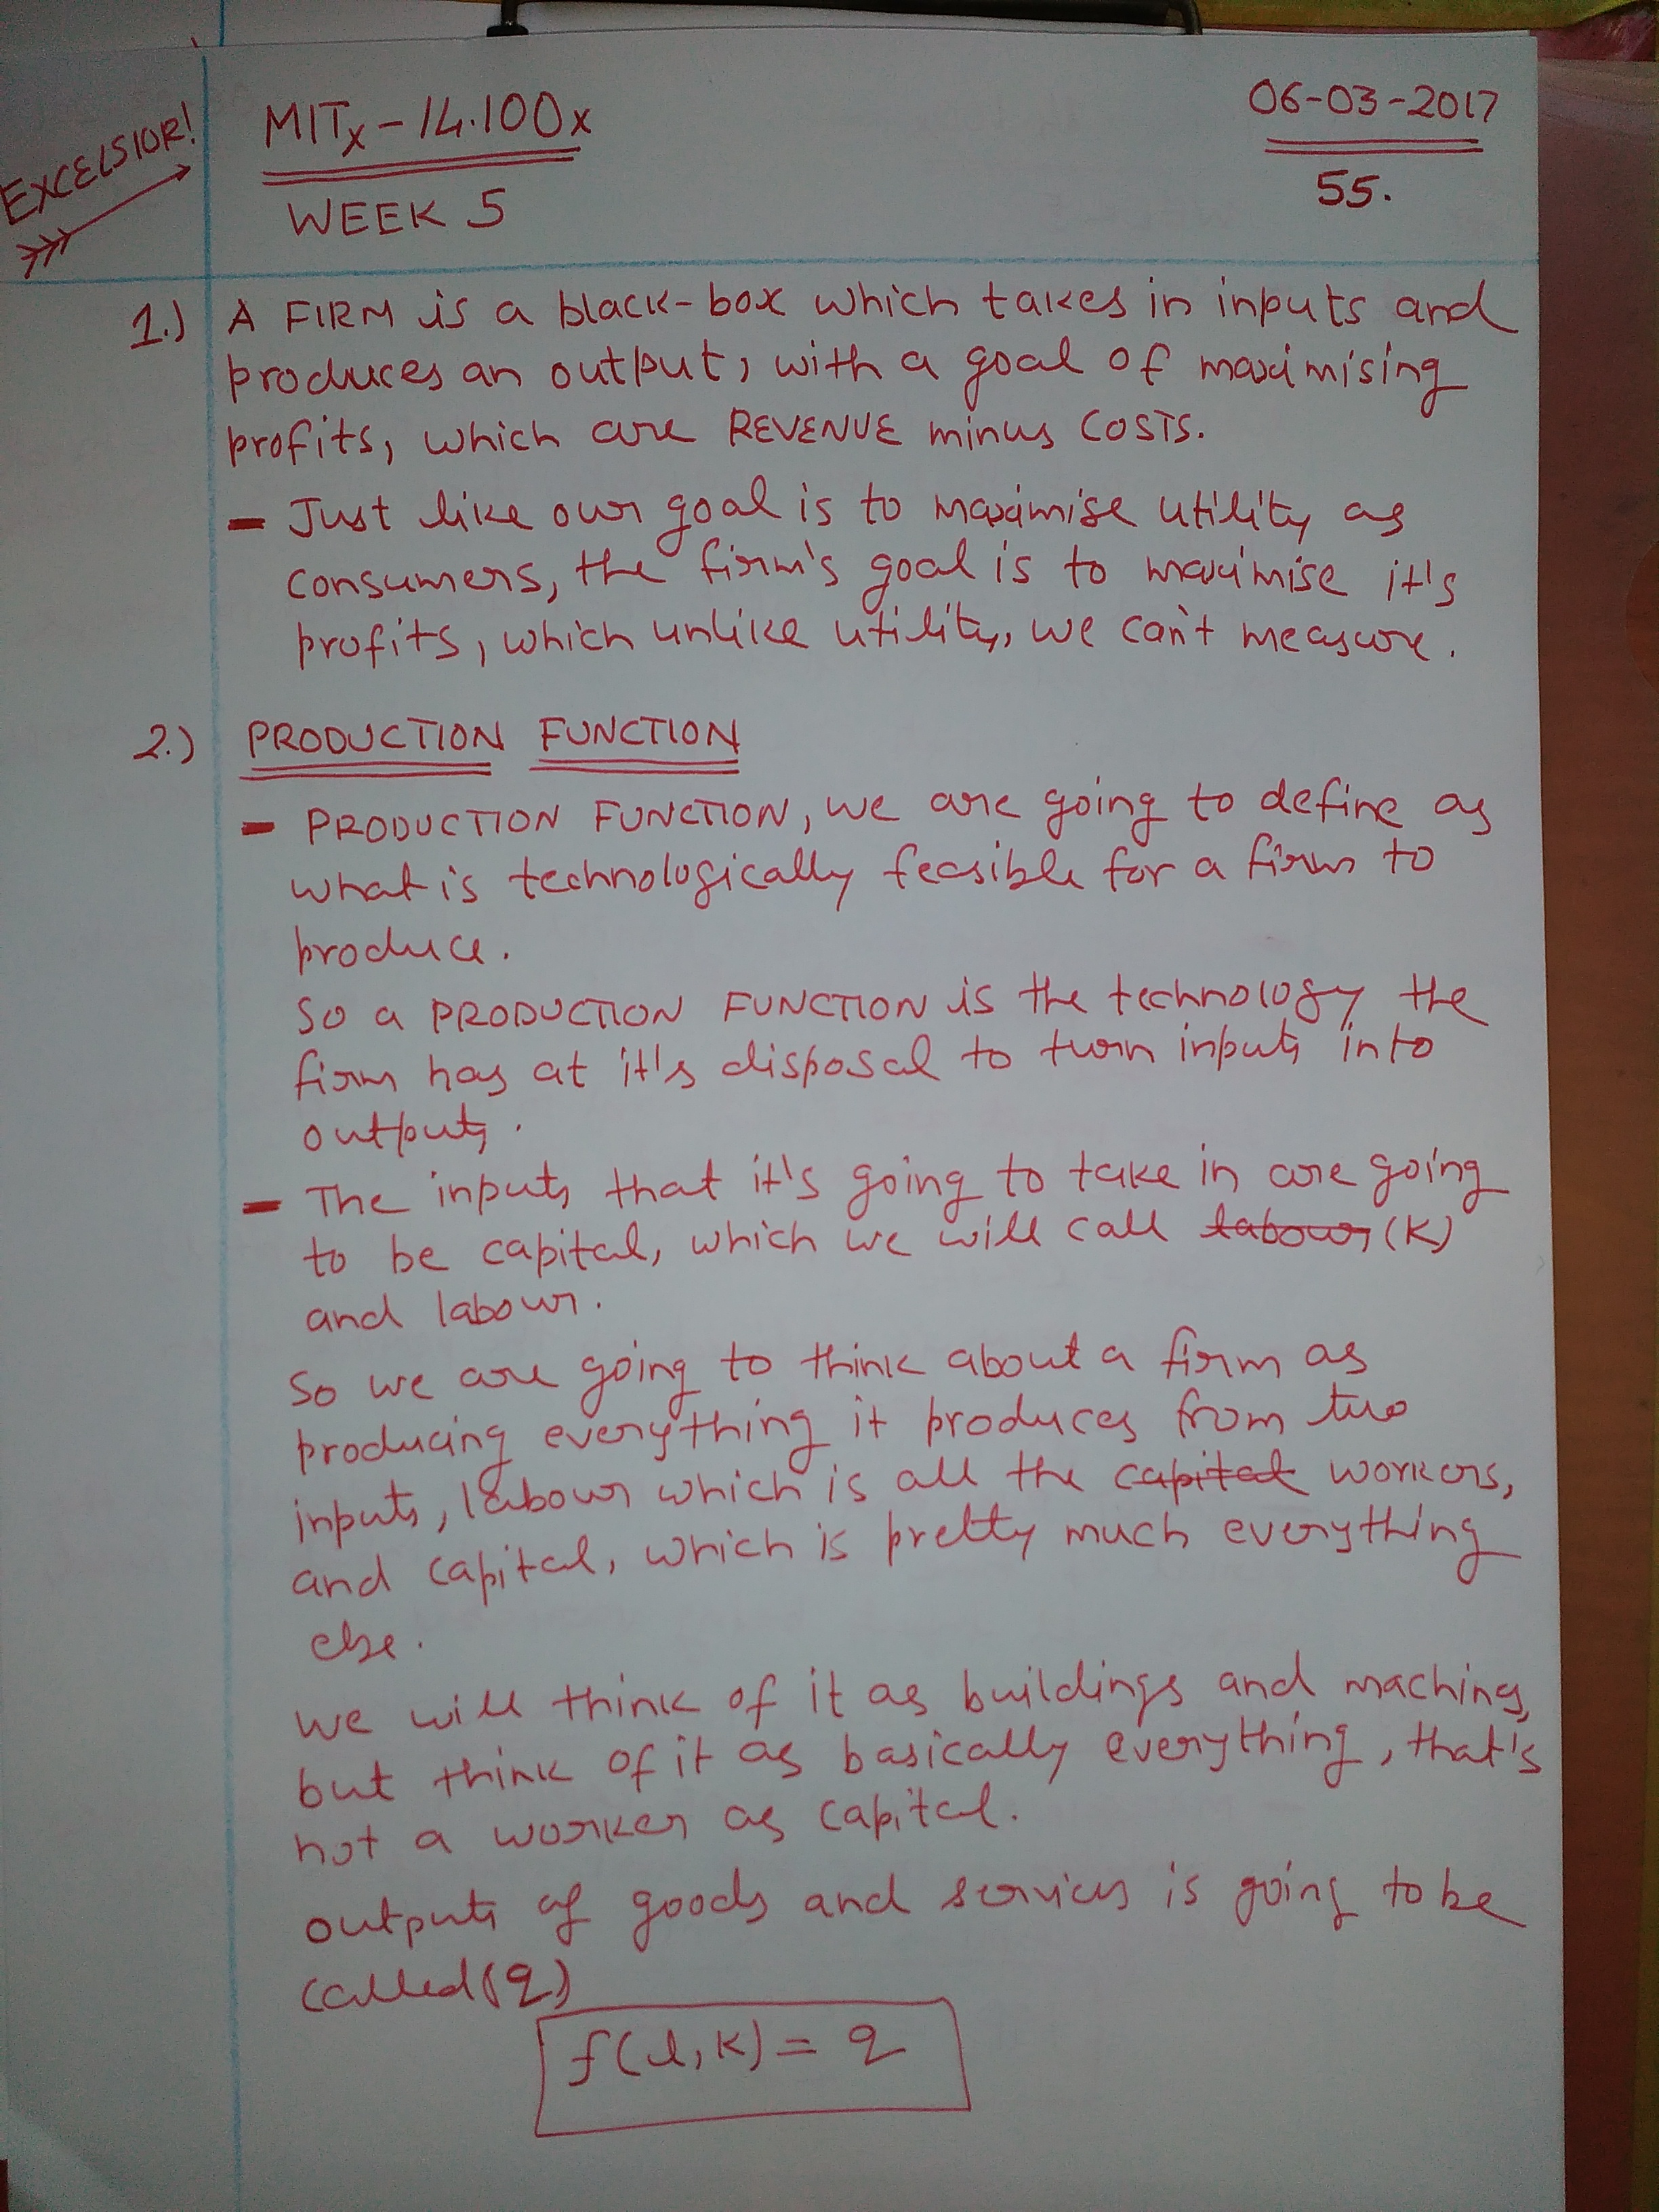 EXCELSIOR!
MITx - 14.100x
WEEK 5
06-03-2017
55.
1.) A FIRM is a black-box which takes in inputs and
produces an output, with a goal of maximising
profits, which are REVENUE minus COSTS.
- Just like our goal is to maximise utility as
consumers, the firm's goal is to maximise it's
profits, which unlike utility, we can't measure.
2.) PRODUCTION FUNCTION
- PRODUCTION FUNCTION, we are going to define as
what is technologically feasible for a firm to
produce.
So a PRODUCTION FUNCTION is the technology the
firm has at it's disposal to turn inputs into
outputs.
- The inputs that it's going to take in are going
to be capital, which we will call labour (K)
and labour.
So we are going to think about a firm as
producing everything it produces from two
inputs, labour which is all the capital workers,
and capital, which is pretty much everything
else.
We will think of it as buildings and machines,
but think of it as basically everything, that's
not a worker as capital.
outputs of goods and services is going to be
called (q)
f(l,k) = q